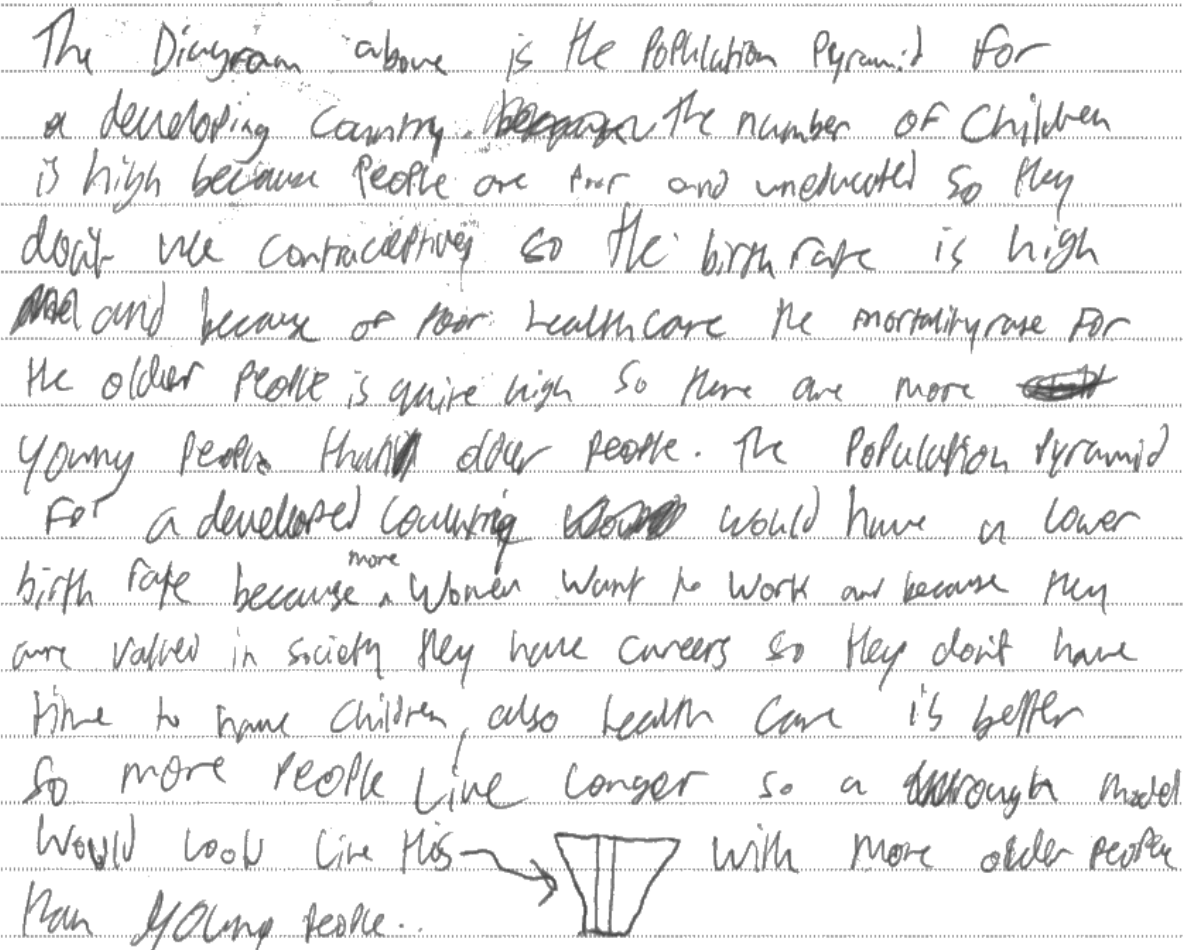 The Diagram above is the Population Pyramid for
a developing Country. the number of Children
is high because People are Poor and uneducated so they
don't use contraceptives so the birth rate is high
and because of Poor healthcare the mortality rate for
the older People is quite high so there are more
young People than older People. The Population Pyramid
For a developed Country would have a lower
birth rate because more Women Want to Work and because they
are valued in society they have careers so they don't have
time to have Children, also health Care is better
So more People Live Longer so a rough model
Would Look Like this with more older People
than young People..